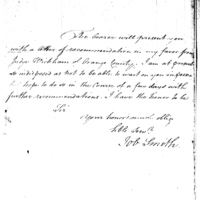 The bearer will present you
with a letter of recommendation in my favor from
Judge Wickham of Orange County. I am at present
so indisposed as not to be able to wait on you in person
I hope to do so in the course of a few days with
further recommendations. I have the honor to be
Sir
your honors most oblg.
Hble Servt.
Job Smith